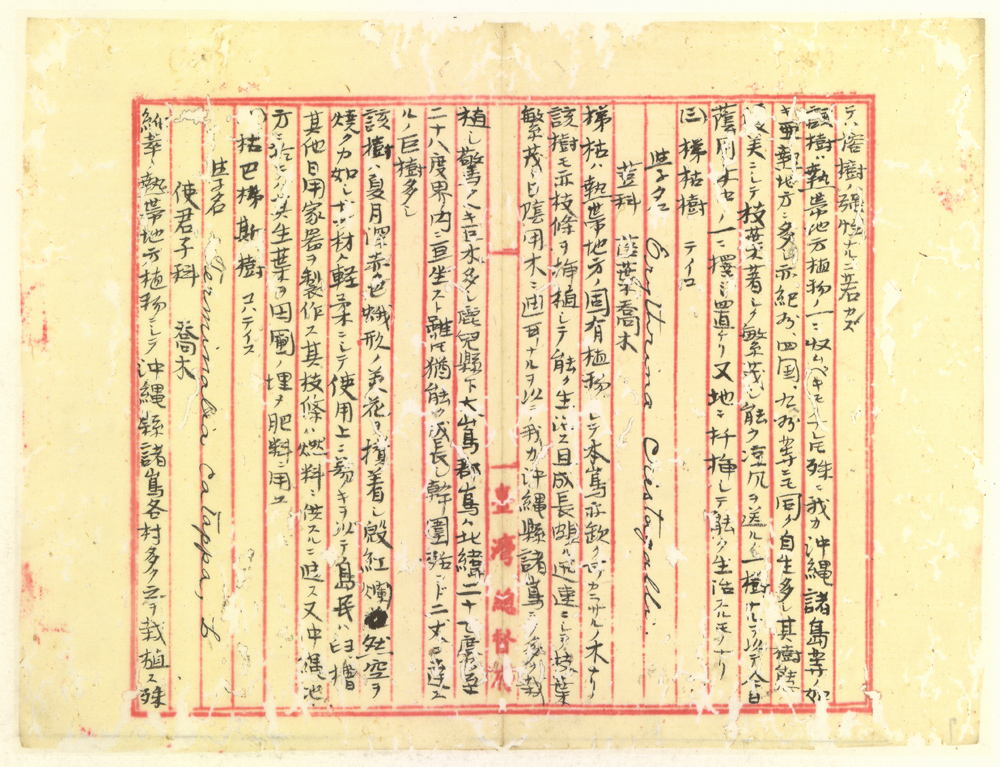 ハ榕樹ノ強悍ナルニ若カズ
該樹ハ熱帯地方植物ノ一ニ収ムベキモノナレ𪜈殊ニ我カ沖縄諸島等ノ如
キ亜熱地方ニ多シ亦紀州、四国、九州等ニモ同ク自生多シ其樹態
美ニシテ枝葉著シク繁茂シ能ク涼風ヲ送ル 一樹ナルヲ以テ今日
蔭用木中ノ一ニ撰ミ置ナリ又地ニ扦挿シテ能ク生活スルモノナリ
(三)梯枯樹 テイコ
学名 Erythrina Cristagalli.
荳科 落葉喬木
梯枯ハ熱帯地方ノ固有植物ニシテ本島亦欠ク可カラサルノ木ナリ
該樹モ亦枝條ヲ挿植シテ能ク生活ス且成長頗ル迅速ニシテ枝葉
繁茂シ日蔭用木ニ適当ナルヲ以テ我カ沖縄縣諸島ニ多ク栽
植シ驚クヘキ巨木多シ鹿児縣下大島郡島ハ北緯二十七度ヨリ至
二十八度界内ニ亘生スト雖モ猶能ク成長シ幹ノ圍殆ント二丈ニ達ス
ルノ巨樹多シ
該樹ハ夏月深赤色蛾形ノ美花ヲ攅着シ殷紅爛然空ヲ
焼クカ如シ十分材ノ軽柔ニシテ使用上ニ易キヲ以テ島民ハ臼槽
其他日用家器ヲ製作ス其枝條ハ燃料ニ供スルニ適ス又沖縄地
方ニ於テハ其生葉ヲ田圃ニ埋メ肥料ニ用ユ
枯巴梯斯樹 コハテイス
学名 Terminalia Catappa, L
使君子科 喬木
熱帯地方植物ニシテ沖縄縣諸島各村多ク之ヲ栽植ス殊
臺灣總督府